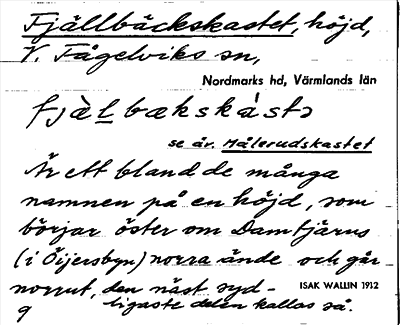 Fjällbäckskastet, höjd,
V. Fågelviks sn,
Nordmarks hd, Värmlands län
fjæ̀l bækskást
se äv. Målerudskastet
Är ett bland de många
namnen på en höjd, som
börjar öster om Damtjärns
(i Öijersbyn) norra ände och går
norrut, den näst syd-
ligaste delen kallas så.
ISAK WALLIN 1912
9